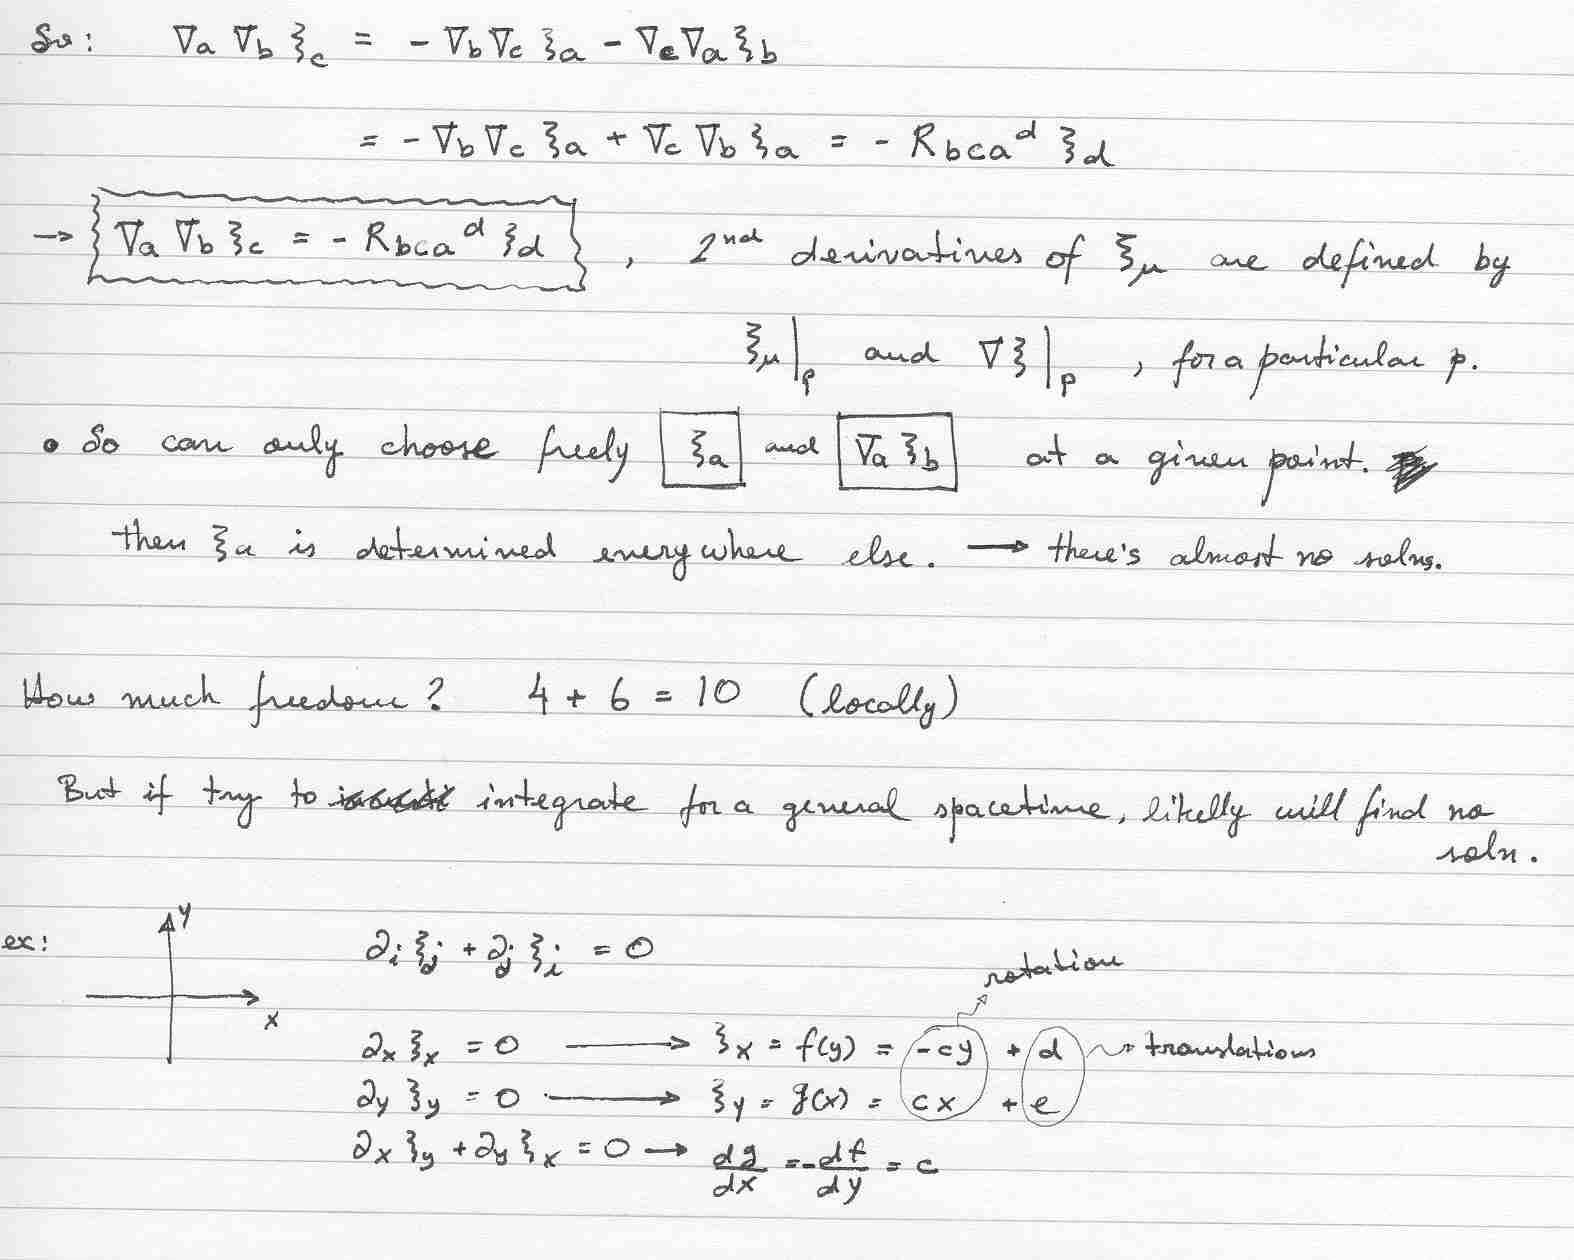 So: ∇a ∇b ξc = - ∇b ∇c ξa - ∇c ∇a ξb
= - ∇b ∇c ξa + ∇c ∇b ξa = - R_bca^d ξd
→ ∇a ∇b ξc = - R_bca^d ξd , 2nd derivatives of ξμ are defined by
ξμ|p and ∇ξ|p , for a particular p.
• So can only choose freely ξa and ∇a ξb at a given point.
then ξa is determined everywhere else. → there's almost no solns.
How much freedom? 4 + 6 = 10 (locally)
But if try to integrate for a general spacetime, likelly will find no
soln.
y
ex: ∂i ξj + ∂j ξi = 0
rotation
x
∂x ξx = 0 → ξx = f(y) = -cy + d → translations
∂y ξy = 0 → ξy = g(x) = cx + e
∂x ξy + ∂y ξx = 0 → dg/dx = -df/dy = c